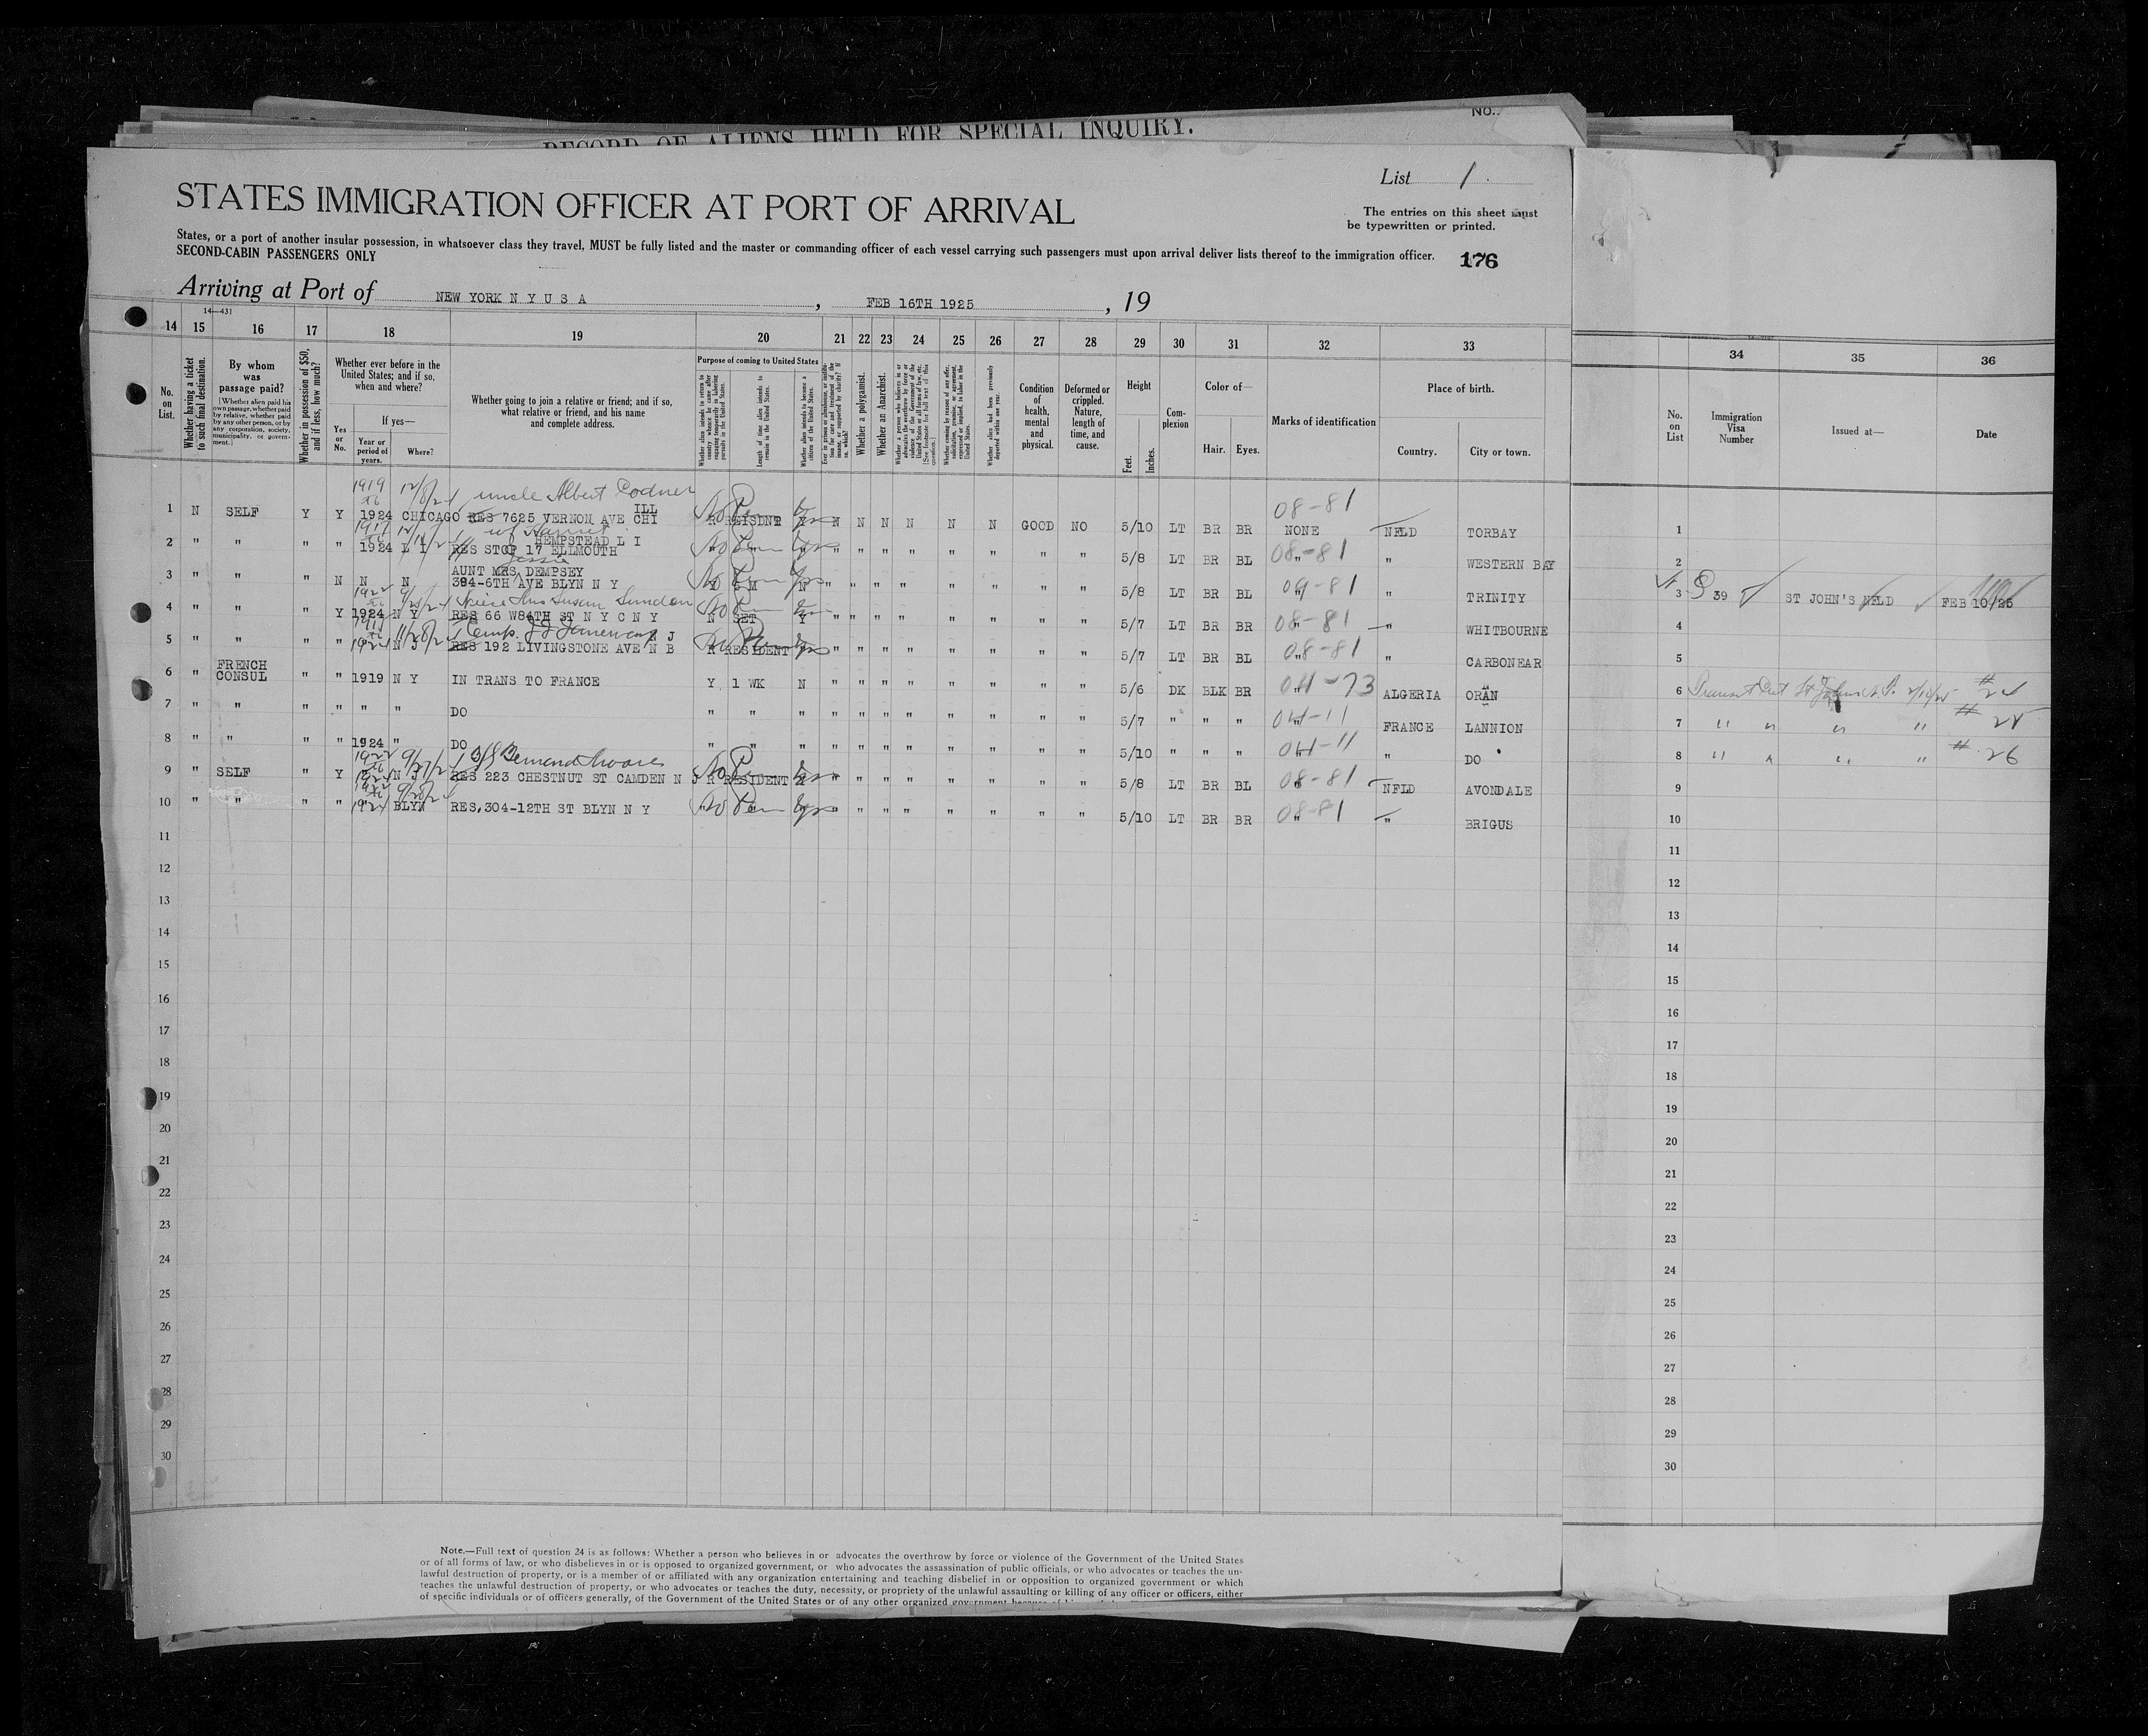 NO.
RECORD OF ALIENS HELD FOR SPECIAL INQUIRY.
List 1
STATES IMMIGRATION OFFICER AT PORT OF ARRIVAL
The entries on this sheet must
be typewritten or printed.
States, or a port of another insular possession, in whatsoever class they travel, MUST be fully listed and the master or commanding officer of each vessel carrying such passengers must upon arrival deliver lists thereof to the immigration officer.
SECOND-CABIN PASSENGERS ONLY
176
Arriving at Port of NEW YORK N Y U S A, FEB 16TH 1925, 19
14—431
14 15 16 17 18 19 20 21 22 23 24 25 26 27 28 29 30 31 32 33 34 35 36
No. on List.
Whether having a ticket to such final destination.
By whom was passage paid?
[Whether alien paid his own passage, whether paid by relative, whether paid by any other person, or by any corporation, society, municipality, or government.]
Whether in possession of $50, and if less, how much?
Whether ever before in the United States; and if so, when and where?
Yes or No.
If yes—
Year or period of years.
Where?
Whether going to join a relative or friend; and if so, what relative or friend, and his name and complete address.
Purpose of coming to United States
Whether alien intends to return to country whence he came after engaging temporarily in laboring pursuits in the United States.
Length of time alien intends to remain in the United States.
Whether alien intends to become a citizen of the United States.
Whether a polygamist.
Whether an Anarchist.
Whether coming by reason of any offer, solicitation, promise, or agreement, expressed or implied, to labor in the United States.
Whether alien had been previously deported within one year.
Condition of health, mental and physical.
Deformed or crippled. Nature, length of time, and cause.
Height
Feet. Inches.
Complexion
Color of—
Hair. Eyes.
Marks of identification
Place of birth.
Country. City or town.
No. on List
Immigration Visa Number
Issued at—
Date
1919 12/8/24 uncle Albert Codner 08-81
ILL
1 N SELF Y Y 1924 CHICAGO RES 7625 VERNON AVE CHI No R REISDNT N N N N N N GOOD NO 5/10 LT BR BR NONE NFLD TORBAY 1
HEMPSTEAD L I
2 " " " " 1924 L I RES STOP 17 ELLMOUTH No " " " " " " " " 5/8 LT BR BL 08-81 " WESTERN BAY 2
Jessie
AUNT MRS DEMPSEY
3 " " " N N N 394-6TH AVE BLYN N Y No 6 M N " " " " " " " " 5/8 LT BR BL 04-81 " TRINITY 3 39 ST JOHN'S NFLD FEB 10/25
1922 9/25/24 Niece Mrs Susan
4 " " " Y 1924 N Y RES 66 W84TH ST N Y C N Y No N SET Y " " " " " " " " 5/7 LT BR BR 08-81 " WHITBOURNE 4
11/28/24 N J
5 " " " " 1924 N J RES 192 LIVINGSTONE AVE N B R RESIDENT " " " " " " " " 5/7 LT BR BL 08-81 " CARBONEAR 5
6 " FRENCH CONSUL " " 1919 N Y IN TRANS TO FRANCE Y 1 WK N " " " " " " " " 5/6 DK BLK BR 04-73 ALGERIA ORAN 6 Transit Cert St Johns N.F. # 24
7 " " " " " " DO " " " " " " " " " " " 5/7 " " " 04-11 FRANCE LANNION 7 " " " " # 25
8 " " " " 1924 " DO " " " " " " " " " " " 5/10 " " " 04-11 " DO 8 " " " " # 26
1922 9/27/24
9 " SELF " Y 1924 N J RES 223 CHESTNUT ST CAMDEN N J No R RESIDENT " " " " " " " " 5/8 LT BR BL 08-81 NFLD AVONDALE 9
10 " " " " 1924 BLYN RES, 304-12TH ST BLYN N Y No " " " " " " " 5/10 LT BR BR 08-81 " BRIGUS 10
11 11
12 12
13 13
14 14
15 15
16 16
17 17
18 18
19 19
20 20
21 21
22 22
23 23
24 24
25 25
26 26
27 27
28 28
29 29
30 30
Note.—Full text of question 24 is as follows: Whether a person who believes in or advocates the overthrow by force or violence of the Government of the United States
or of all forms of law, or who disbelieves in or is opposed to organized government, or who advocates the assassination of public officials, or who advocates or teaches the un-
lawful destruction of property, or is a member of or affiliated with any organization entertaining and teaching disbelief in or opposition to organized government or which
teaches the unlawful destruction of property, or who advocates or teaches the duty, necessity, or propriety of the unlawful assaulting or killing of any officer or officers, either
of specific individuals or of officers generally, of the Government of the United States or of any other organized government because of